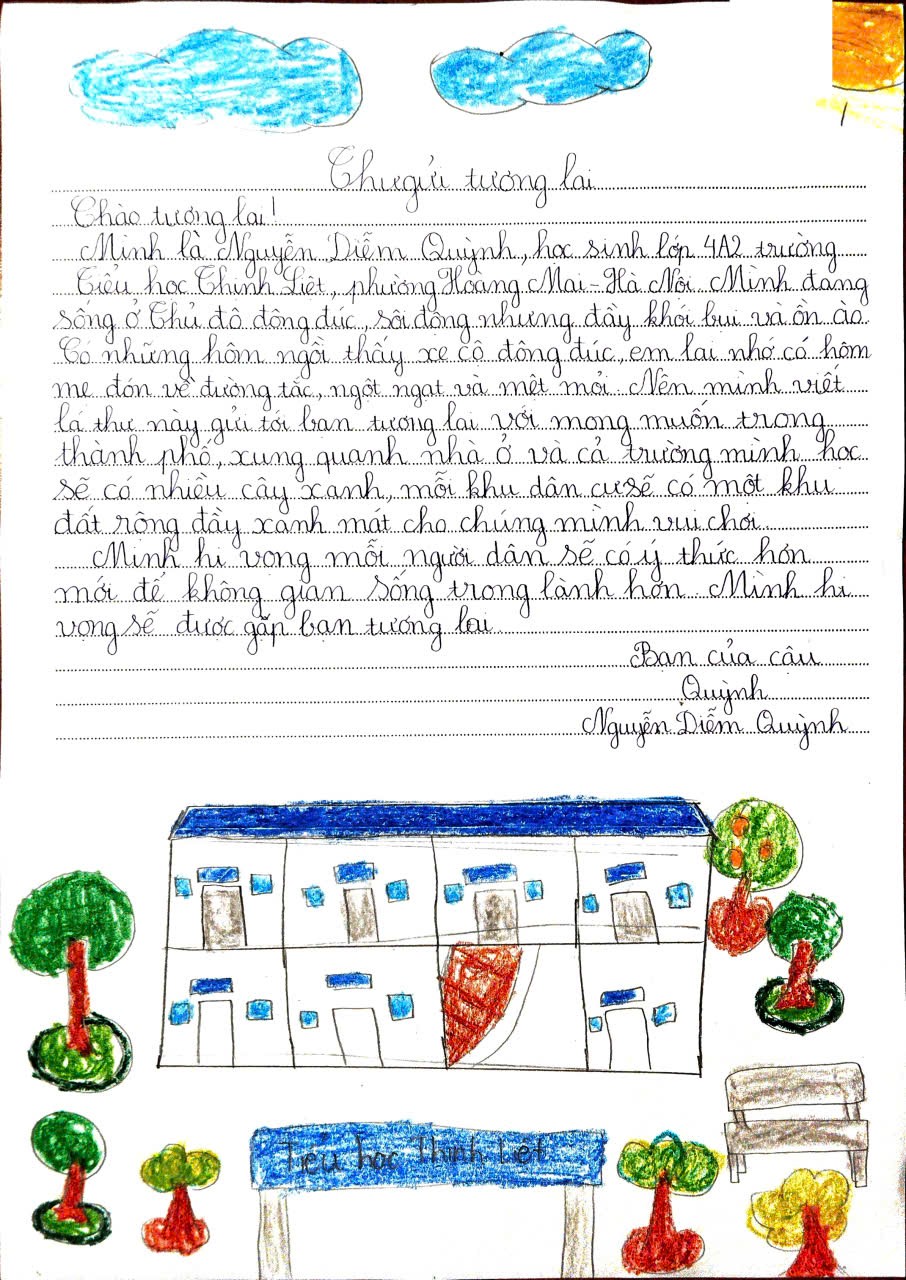 Thư gửi tương lai
Chào tương lai!
Mình là Nguyễn Diễm Quỳnh, học sinh lớp 4A2 trường
Tiểu học Thịnh Liệt, phường Hoàng Mai - Hà Nội. Mình đang
sống ở Thủ đô đông đúc, sôi động nhưng đầy khói bụi và ồn ào.
Có những hôm ngồi thấy xe cộ đông đúc, em lại nhớ có hôm
mẹ đón về đường tắc, ngột ngạt và mệt mỏi. Nên mình viết
lá thư này gửi tới bạn tương lai với mong muốn trong
thành phố, xung quanh nhà ở và cả trường mình học
sẽ có nhiều cây xanh, mỗi khu dân cư sẽ có một khu
đất rộng đầy xanh mát cho chúng mình vui chơi.
Mình hi vọng mỗi người dân sẽ có ý thức hơn
mới để không gian sống trong lành hơn. Mình hi
vọng sẽ được gặp bạn tương lai.
Bạn của cậu
Quỳnh
Nguyễn Diễm Quỳnh
Tiểu học Thịnh Liệt